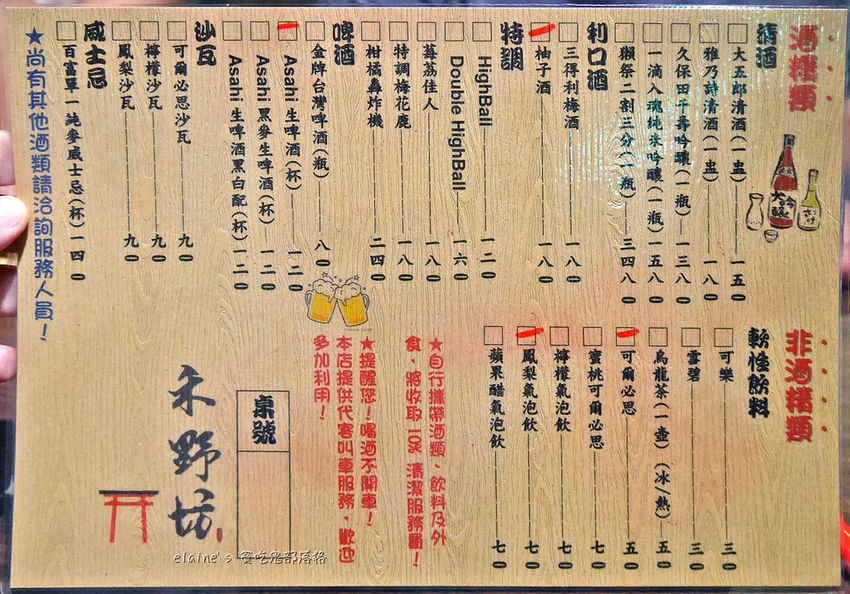 酒精類
清酒
大五郎清酒(一盅) 一五0
雅乃詩清酒(一盅) 一八0
久保田千壽吟釀(一瓶) 一三八0
一滴入魂純米吟釀(一瓶) 一五八0
獺祭二割三分(一瓶) 三四八0
利口酒
三得利梅酒 一八0
柚子酒 一八0
特調
HighBall 一二0
Double HighBall 一六0
莓荔佳人 一八0
特調梅花鹿 一八0
柑橘轟炸機 二四0
啤酒
金牌台灣啤酒(瓶) 八0
Asahi 生啤酒(杯) 一二0
Asahi 黑麥生啤酒(杯) 一二0
Asahi 生啤酒黑白配(杯) 一二0
沙瓦
可爾必思沙瓦 九0
檸檬沙瓦 九0
鳳梨沙瓦 九0
威士忌
百富單一純麥威士忌(杯) 一四0
★尚有其他酒類請洽詢服務人員!
大吟釀
さけ
非酒精類
軟性飲料
可樂 三0
雪碧 三0
烏龍茶(一壺)(冰/熱) 五0
可爾必思 五0
蜜桃可爾必思 七0
檸檬氣泡飲 七0
鳳梨氣泡飲 七0
蘋果醋氣泡飲 七0
★自行攜帶酒類、飲料及外
食,將收取 10% 清潔服務費!
★提醒您!喝酒不開車!
本店提供代客叫車服務,歡迎
多加利用!
桌號
禾野坊
elaine's 愛吃鬼部落格